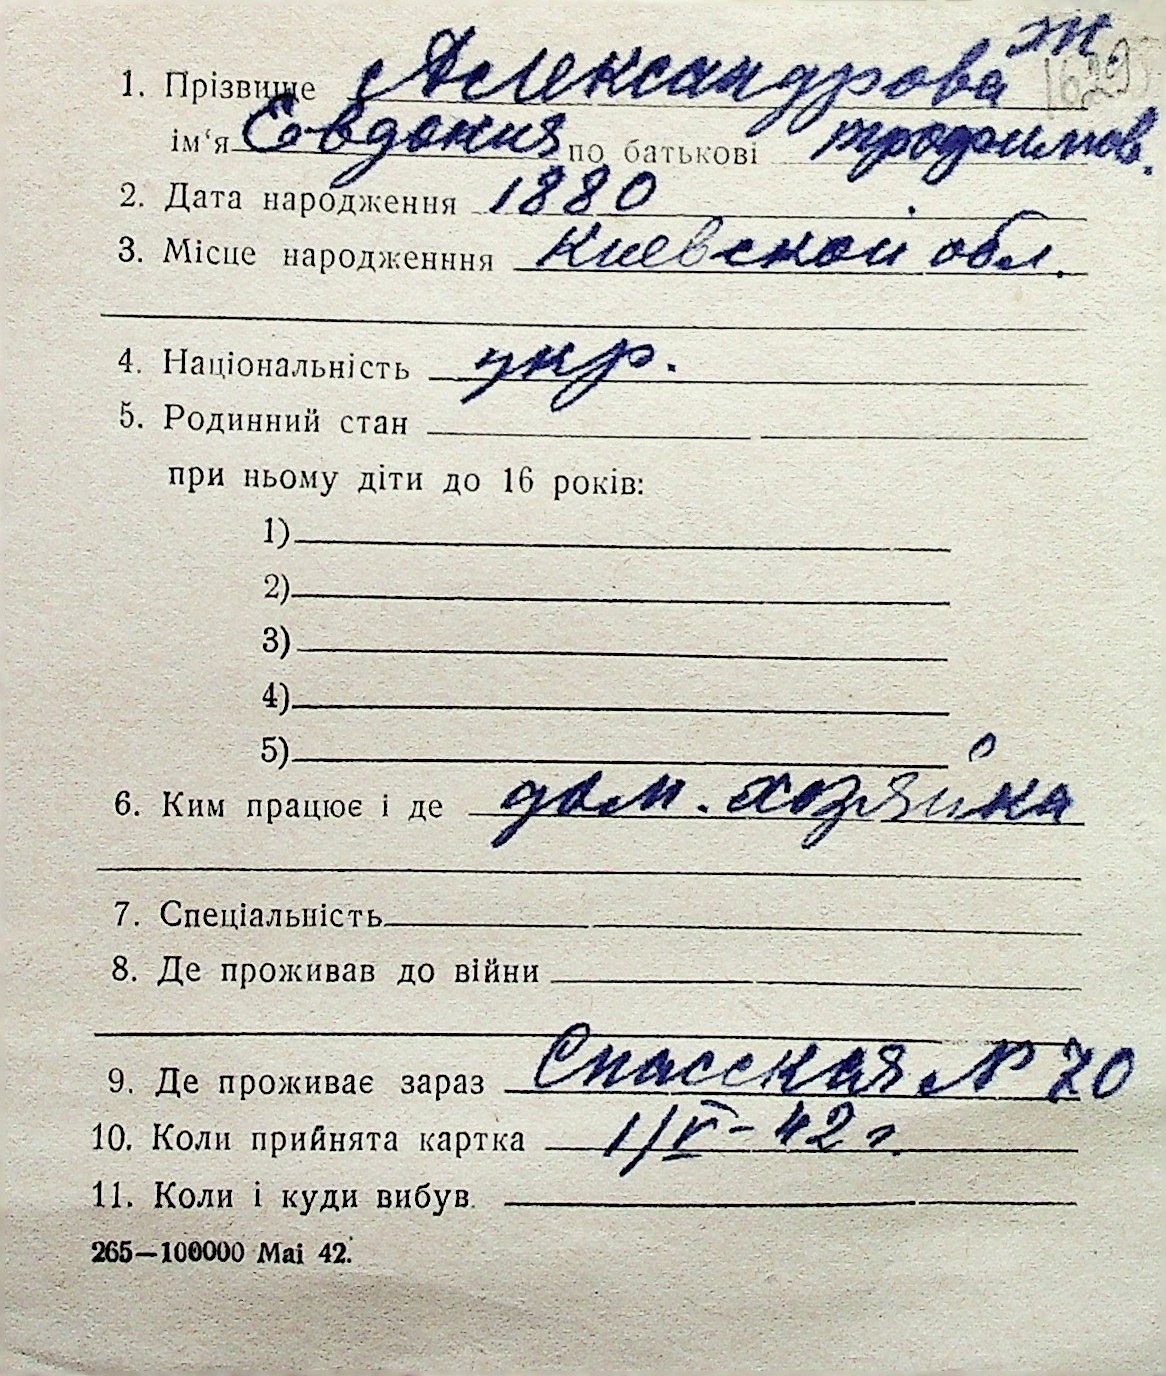 ж
1. Прізвище Александрова
ім'я Евдокия по батькові трофимов.
2. Дата народження 1880
3. Місце народженння Киевской обл.
4. Національність укр.
5. Родинний стан
при ньому діти до 16 років:
1)
2)
3)
4)
5)
6. Ким працює і де дом. хозяйка
7. Спеціальність
8. Де проживав до війни
9. Де проживає зараз Спасская № 70
10. Коли прийнята картка 1/V-42 г.
11. Коли і куди вибув.
265—100000 Mai 42.